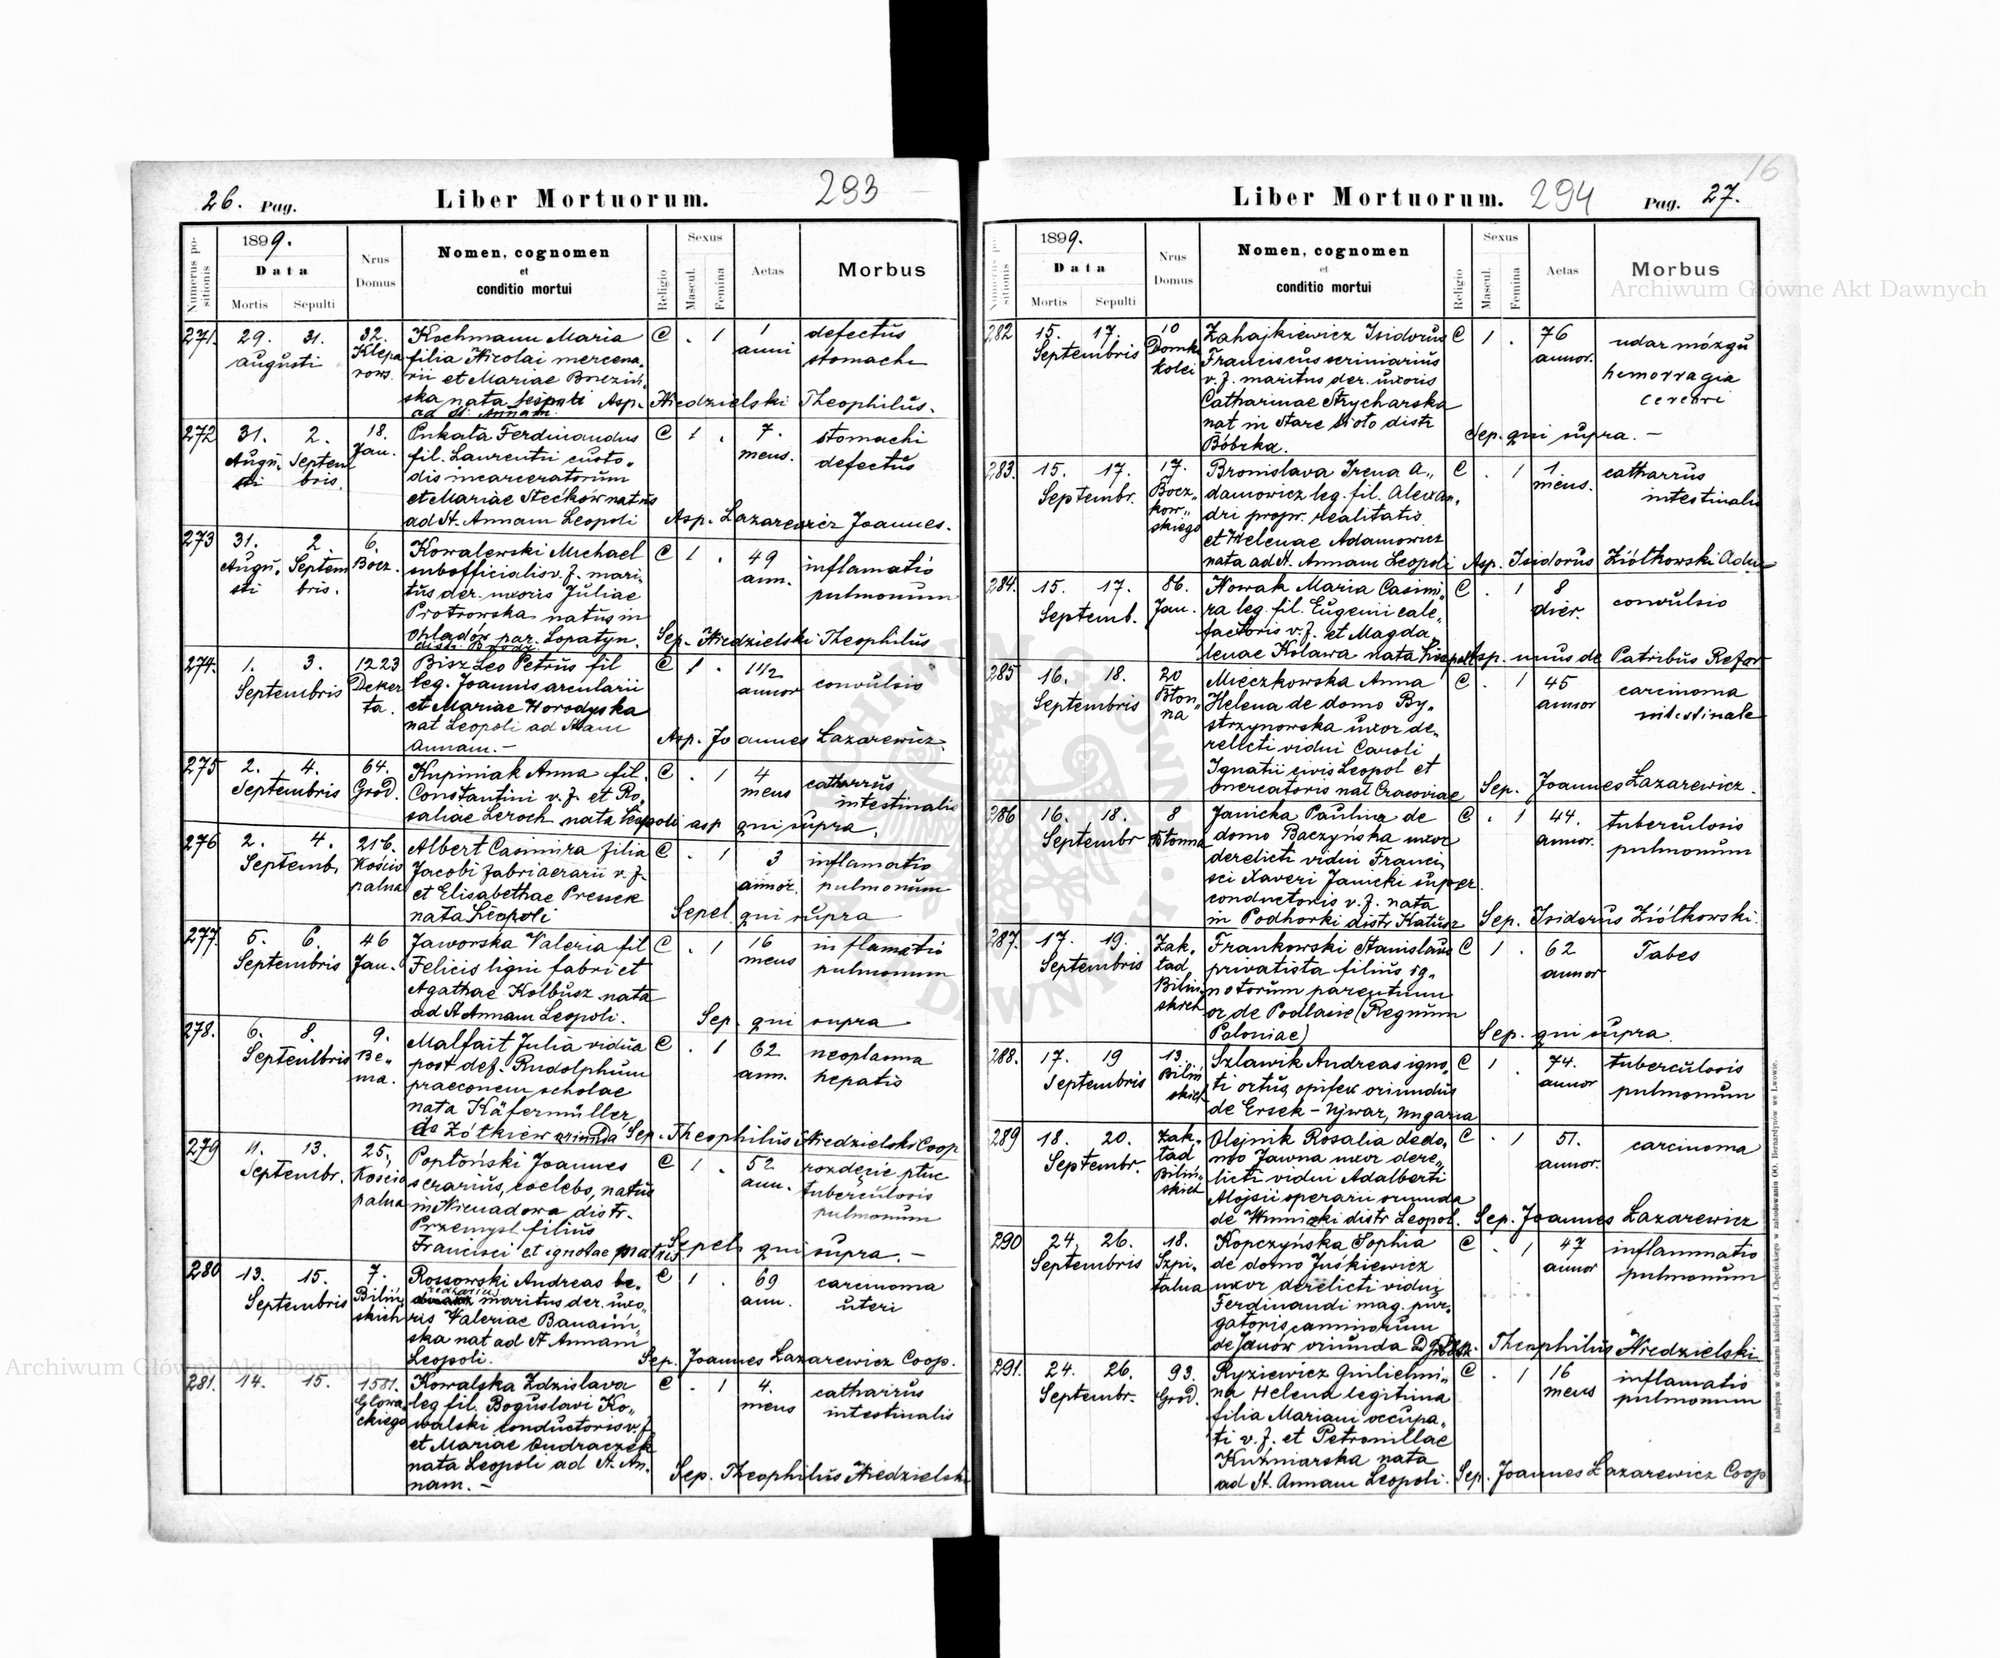 26. Pag. Liber Mortuorum. 293
Numerus positionis 1899. Data Mortis Sepulti Nrus Domus Nomen, cognomen et conditio mortui Religio Sexus Mascul. Femina Aetas Morbus
271. 29. 31. augusti 32. Klepa rows. Kochmann Maria C . 1 1 anni defectus stomachi
filia Nicolai mercena,
rii et Mariae Brezin,
ska nata Leopoli Asp. Niedzielski Theophilus.
ad St. Annam.
272 31. Augu, sti 2. Septem bris. 18. Jan. Pukata Ferdinandus C 1 . 7. mens. stomachi defectus
fil. Laurentii custo,
dis incarceratorum
et Mariae Steckow natus
ad St. Annam Leopoli Asp. Lazarewicz Joannes.
273 31. Augu, sti 2. Septem bris. 6. Bocz. Kowalewski Michael C 1 . 49 ann. inflamatio pulmonum
subofficialis v. f. mari,
tus der. uxoris Juliae
Protrowska natus in
Ohladów par. Lopatyn. Sep. Niedzielski Theophilus
distr. Brody
274. 1. 3. Septembris 1223 Deker ta. Bisz Leo Petrus fil C 1 . 1 1/2 annor convulsio
leg. Joannis arcularii
et Mariae Horodyska
nat Leopoli ad Stam
Annam.- Asp. Joannes Lazarewicz.
275 2. 4. Septembris 64. Grod. Kupiniak Anna fil. C . 1 4 mens catharrus intestinalis
Constantini v. f. et Ro,
saliae Leroch nata Leopoli asp qui supra.
276 2. 4. Septemb. 216. Kościo palna Albert Casimira filia C . 1 3 annor. inflamatio pulmonum
Jacobi fabri aerarii v. f.
et Elisabethae Pressek
nata Leopoli Sepel. qui supra
277 5. 6. Septembris 46 Jan. Jaworska Valeria fil C . 1 16 mens inflamatio pulmonum
Felicis ligni fabri et
Agathae Kolbusz nata
ad St Annam Leopoli. Sep. qui supra
278. 6. 8. Septembris 9. Be„ ma. Malfait Julia vidua C . 1 62 ann. neoplasma hepatis
post def. Rudolphum
praeconem scholae
nata Käfermüller,
de Żółkiew oriunda Sep. Theophilus Niedzielski Coop
279 11. 13. Septembr. 25, Kościo palna Popłoński Joannes C 1 . 52 ann. rozdęcie płuc
serarius, coelebs, natus tuberculosis
in Nienadowa distr. pulmonum
Przemysl filius
Francisci et ignotae matris. Sepel. qui supra.-
280 13. 15. Septembris 7. Biliń, skich Rossowski Andreas C 1 . 69 ann. carcinoma uteri
maritus der. uxo,
ris Valeriae Banasiń,
ska nat ad St Annam
Leopoli. Sep. Joannes Lazarewicz Coop.
281. 14. 15. 1581. Głowa ckiego Kowalska Zdzislava C . 1 4. mens catharrus intestinalis
leg fil. Boguslavi Ko,
walski conductoris v. f.
et Mariae Ondraczek
nata Leopoli ad St. An,
nam.- Sep. Theophilus Niedzielski
16
Liber Mortuorum. 294 Pag. 27.
1899. Data Mortis Sepulti Nrus Domus Nomen, cognomen et conditio mortui Religio Sexus Mascul. Femina Aetas Morbus
282 15. 17. Septembris 10 kolei Zahajkiewicz Isidorus C 1 . 76 annor. udar mózgu
Franciscus scriniarius hemorragia
v. f. maritus der. uxoris cerebri
Catharinae Strycharska
nat in Stare Sioło distr Sep. qui supra.-
Bóbrka.
283. 15. 17. Septembr. 17. Bocz„ kow„ skiego Bronislava Irena A„ C . 1 1 mens. catharrus intestinalis
damowicz leg. fil. Alexan,
dri propr. realitatis
et Helenae Adamowicz
nata ad St. Annam Leopoli Asp. Isidorus Ziółkowski Adm
284. 15. 17. Septemb. 86. Jan. Nowak Maria Casimi, C . 1 8 dier. convulsio
ra leg. fil. Eugenii cale,
factoris v. f. et Magda,
lenae Kolawa nata Leopoli Asp. unus de Patribus Refor
285 16. 18. Septembris 20 Błon„ na Mieczkowska Anna C . 1 45 annor carcinoma intestinale
Helena de domo By,
strzynowska uxor de,
relicti vidui Caroli
Ignatii civis Leopol et
mercatoris nat Cracoviae Sep. Joannes Lazarewicz.
286 16. 18. Septembr 8 Błonna Janicka Paulina de C . 1 44. annor. tuberculosis pulmonum
domo Baczyńska uxor
derelicti vidui Franci,
sci Xaveri Janicki super.
conductoris v. f. nata
in Podhorki distr Kałusz Sep. Isidorus Ziółkowski.
287. 17. 19. Septembris Zak- ład Biliń, skich Frankowski Stanislaus C 1 . 62 annor Tabes
privatista filius ig„
notorum parentum
or de Podlasie (Regnum
Poloniae) Sep. qui supra.
288. 17. 19 Septembris 13. Biliń skich Szlawik Andreas igno, C 1 . 74. annor tuberculosis pulmonum
ti ortus, opifex oriundus
de Ersek-Ujwar, Ungaria
289 18. 20. Septembr. Zak- ład Biliń„ skich Olejnik Rosalia de do, C . 1 51. annor. carcinoma
mo Jawna uxor dere,
licti vidui Adalberti
Alojsii operarii oriunda
de Winniczki distr Leopol. Sep. Joannes Lazarewicz
290 24. 26. Septembris 18. Szpi, talna Kopczyńska Sophia C . 1 47 annor inflammatio pulmonum
de domo Juśkiewicz
uxor derelicti vidui
Ferdinandi mag. pur,
gatoris camminorum
de Janów oriunda Theophilus Niedzielski
291. 24. 26. Septembr. 93. Grod. Ryziewicz Guilielmi, C . 1 16 mens inflamatio pulmonum
na Helena legitima
filia Mariani occupa,
ti v. f. et Petronillae
Kuźniarska nata
ad St. Annam Leopoli. Sep. Joannes Lazarewicz Coop
Do nabycia w drukarni katolickiej J. Chęcińskiego w zabudowaniu OO. Bernardynów we Lwowie.
Archiwum Główne Akt Dawnych
Archiwum Główne Akt Dawnych